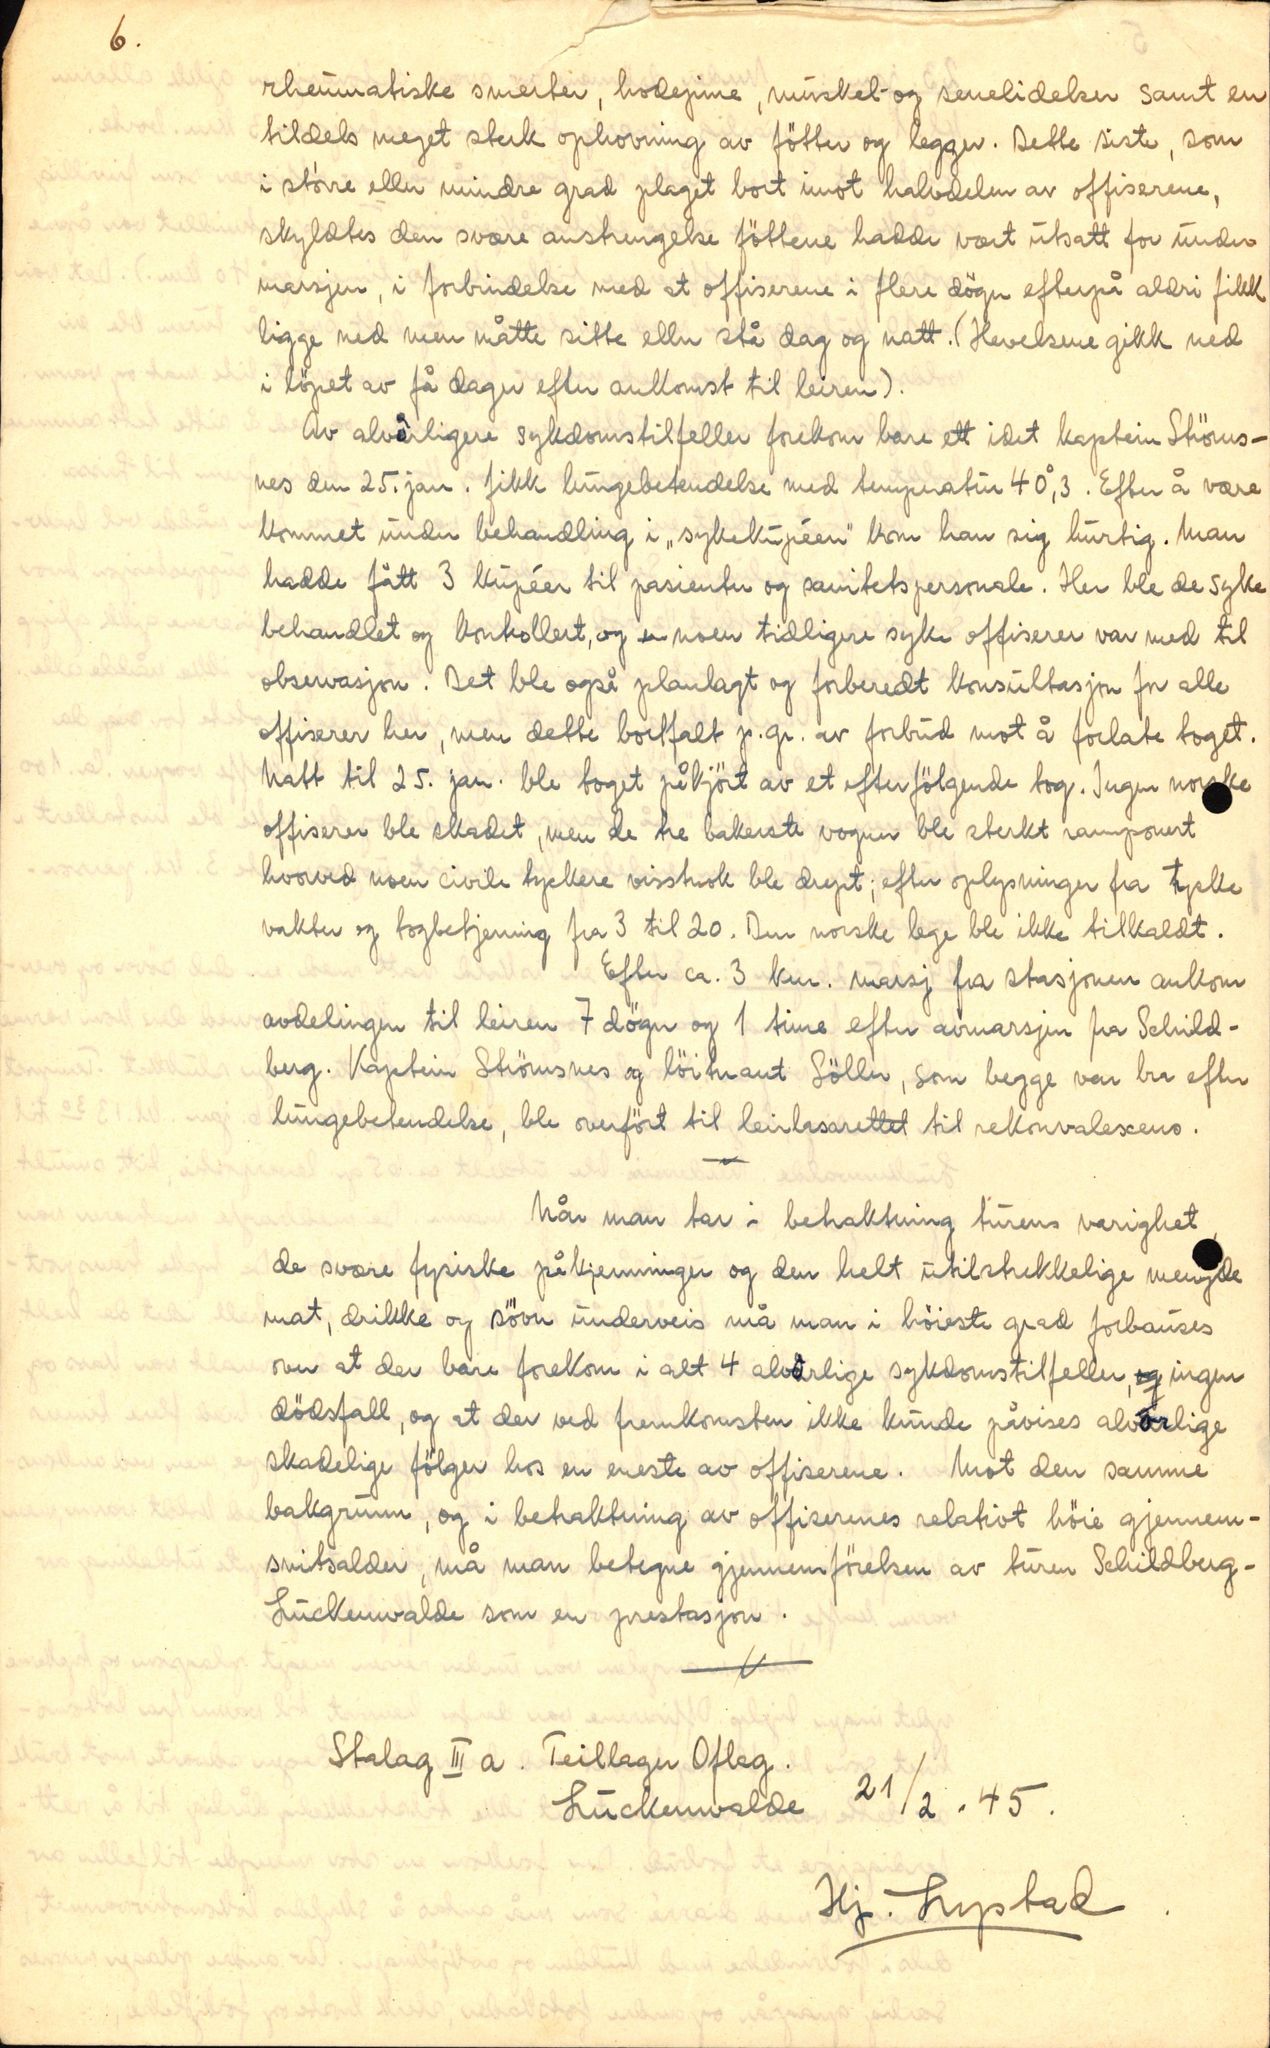 6.
rheumatiske smerter, hodepine, muskel- og senelidelser samt en
tildels meget sterk ophovning av fötter og legger. Dette siste, som
i större eller mindre grad plaget bort imot halvdelen av offiserene,
skyldtes den svære anstrengelse föttene hadde vært utsatt for under
marsjen, i forbindelse med at offiserene i flere dögn efterpå aldri fikk
ligge ned men måtte sitte eller stå dag og natt. (Hevelsene gikk ned
i löpet av få dager efter ankomst til leiren).
Av alvårligere sykdomstilfeller forekom bare ett idet kaptein Ströms-
nes den 25. jan. fikk lungebetendelse med temperatur 40°,3. Efter å være
kommet under behandling i „sykekupéen" kom han sig hurtig. Man
hadde fått 3 kupéer til pasienter og sanitetspersonale. Her ble de syke
behandlet og kontrollert, og noen tidligere syke offiserer var med til
observasjon. Det ble også planlagt og forberedt konsultasjon for alle
offiserer her, men dette bortfalt p.gr. av forbud mot å forlate toget.
Natt til 25. jan. ble toget påkjört av et efterfölgende tog. Ingen norske
offiserer ble skadet, men de tre bakerste vogner ble sterkt ramponert
hvorved noen civile tyskere visstnok ble drept; efter oplysninger fra tyske
vakter og togbetjening fra 3 til 20. Den norske lege ble ikke tilkaldt.
Efter ca. 3 km. marsj fra stasjonen ankom
avdelingen til leiren 7 dögn og 1 time efter avmarsjen fra Schild-
berg. Kaptein Strömsnes og löitnant Söller, som begge var bra efter
lungebetendelse, ble overfört til leirlasarettet til rekonvalesens.
Når man tar i betraktning turens varighet,
de svære fysiske påkjenninger og den helt utilstrekkelige mengde
mat, drikke og sövn underveis må man i höieste grad forbauses
over at der bare forekom i alt 4 alvårlige sykdomstilfeller, og ingen
dödsfall, og at der ved fremkomsten ikke kunde påvises alvårlige
skadelige fölger hos en eneste av offiserene. Mot den samme
bakgrunn, og i betraktning av offiserenes relativt höie gjennem-
snitsalder, må man betegne gjennemförelsen av turen Schildberg-
Luckenwalde som en prestasjon.
Stalag III a. Teillager Oflag.
Luckenwalde 21/2. 45.
Hj. Lystad